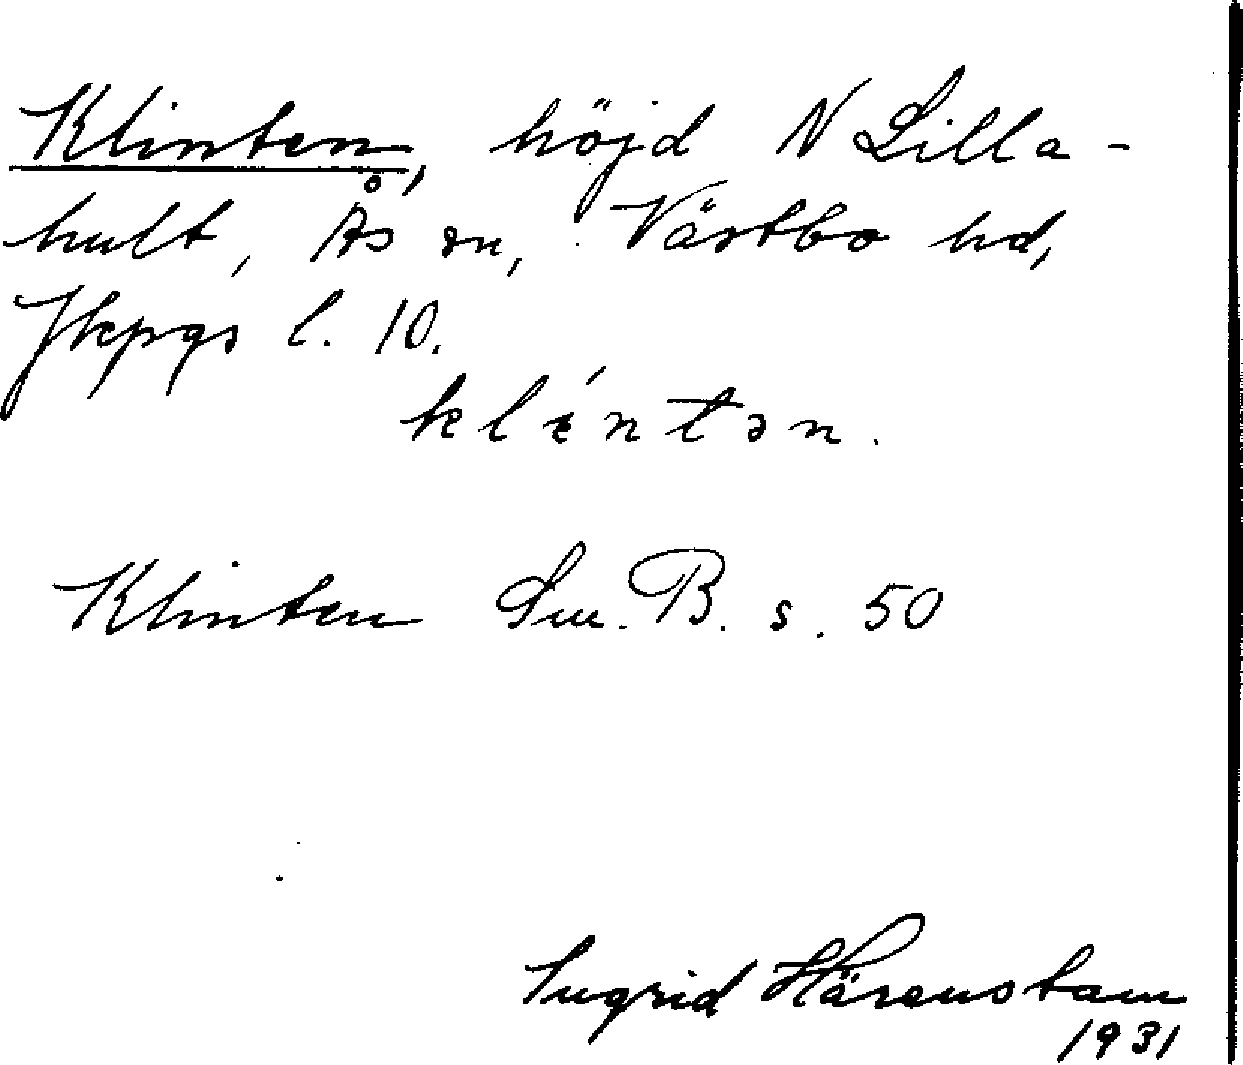 Klinten, höjd N Lilla-
hult, Ås sn, Västbo hd,
Jkpgs l. 10.
klíntən.
Klinten Sm. B. s. 50
Ingrid Härenstam
1931